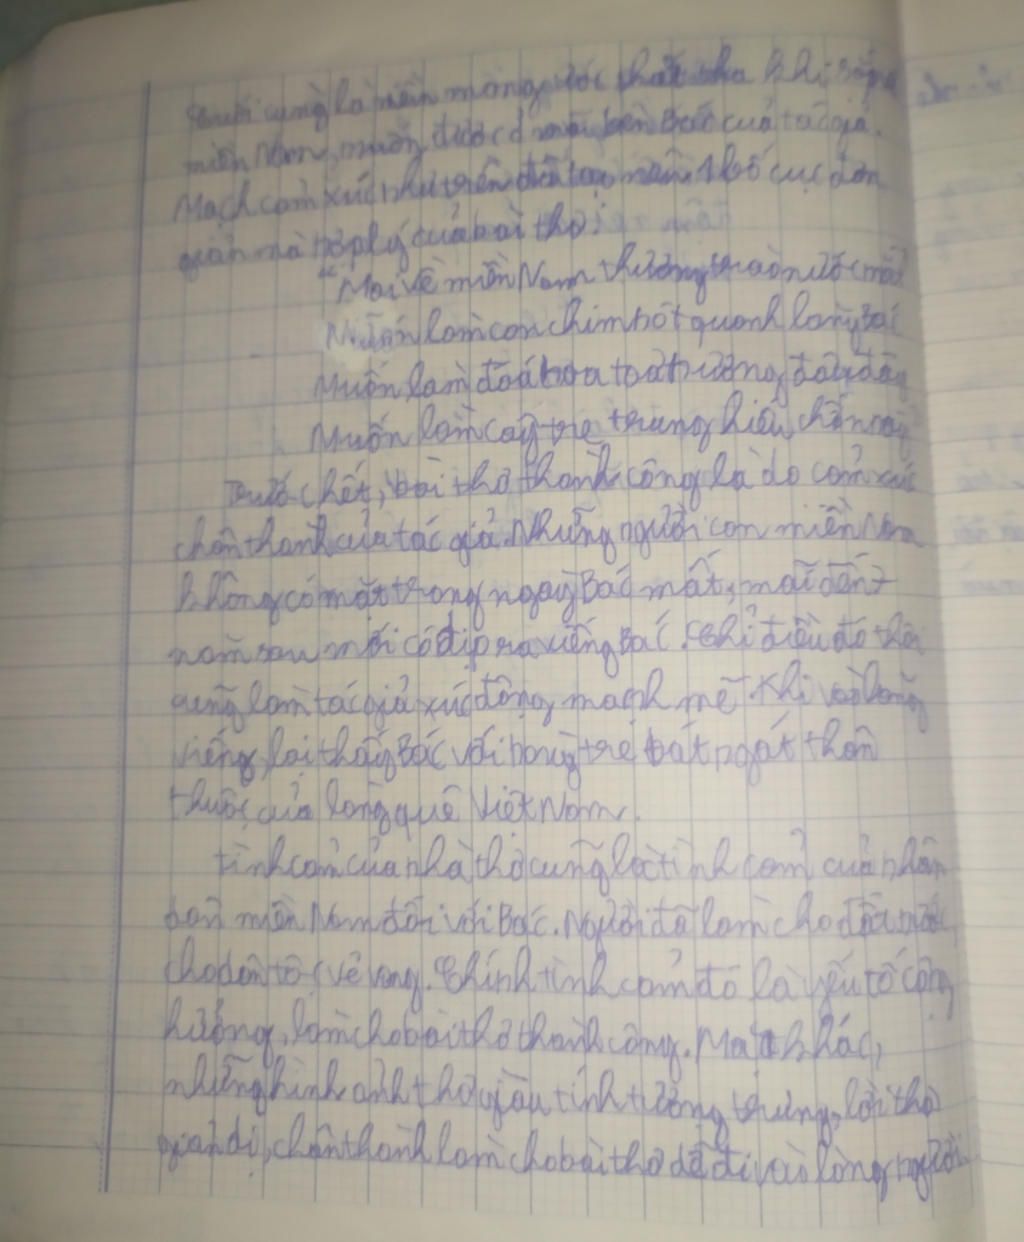 cuối cùng là niềm mong ước thiết tha khi sắp về
miền Nam, muốn được ở mãi bên Bác của tác giả.
Mạch cảm xúc như trên đã tạo nên 1 bố cục đơn
giản mà hợp lý của bài thơ:
"Mai về miền Nam thương trào nước mắt
Muốn làm con chim hót quanh lăng Bác
Muốn làm đoá hoa toả hương đâu đây
Muốn làm cây tre trung hiếu chốn này
Trước hết, bài thơ thành công là do cảm xúc
chân thành của tác giả. Những người con miền Nam
không có mặt trong ngày Bác mất, mãi đến 7
năm sau mới có dịp ra viếng Bác. Chỉ điều đó thôi
cũng làm tác giả xúc động mạnh mẽ. Khi vào lăng
viếng, lại thấy Bác với hàng tre bát ngát thân
thuộc của làng quê Việt Nam.
Tình cảm của nhà thơ cũng là tình cảm của nhân
dân miền Nam đối với Bác. Người đã làm cho đất nước,
cho dân tộc vẻ vang. Chính tình cảm đó là yếu tố cộng
hưởng, làm cho bài thơ thành công. Mặt khác,
những hình ảnh thơ giàu tính tượng trưng, lời thơ
giản dị, chân thành làm cho bài thơ dễ đi vào lòng người.